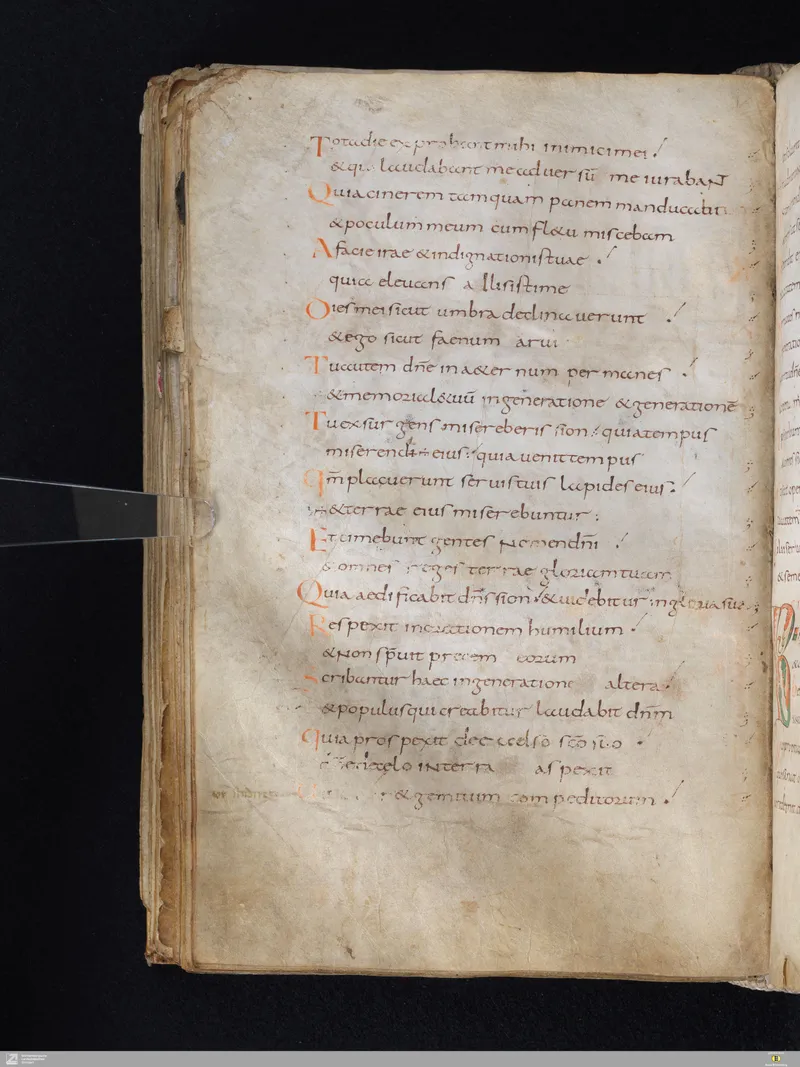 Tota die exprobrabant mihi inimici mei
& qui laudabant me aduersū me iurabant
Quia cinerem tamquam panem manducabā
& poculum meum cum fl&u miscebam
A facie irae & indignationis tuae
quia eleuans allisisti me
Dies mei sicut umbra declinauerunt
& ego sicut faenum arui
Tu autem dn̄e in a&ernum permanes
& memorial& uū in generatione & generationē
Tu exsurgens misereberis sion quia tempus
miserendi eius quia uenit tempus
Qm̄ placuerunt seruis tuis lapides eius
& terrae eius miserebuntur
Et timebunt gentes nomen dn̄i
& omnes reges terrae gloriam tuam
Quia aedificabit dn̄s sion & uidebitur in gloria sua
Respexit in orationem humilium
& non sp̄uit precem eorum
Scribantur haec in generatione altera
& populus qui creabitur laudabit dn̄m
Quia prospexit de excelso sc̄o suo
de caelo in terra aspexit
& gemitum compeditorum